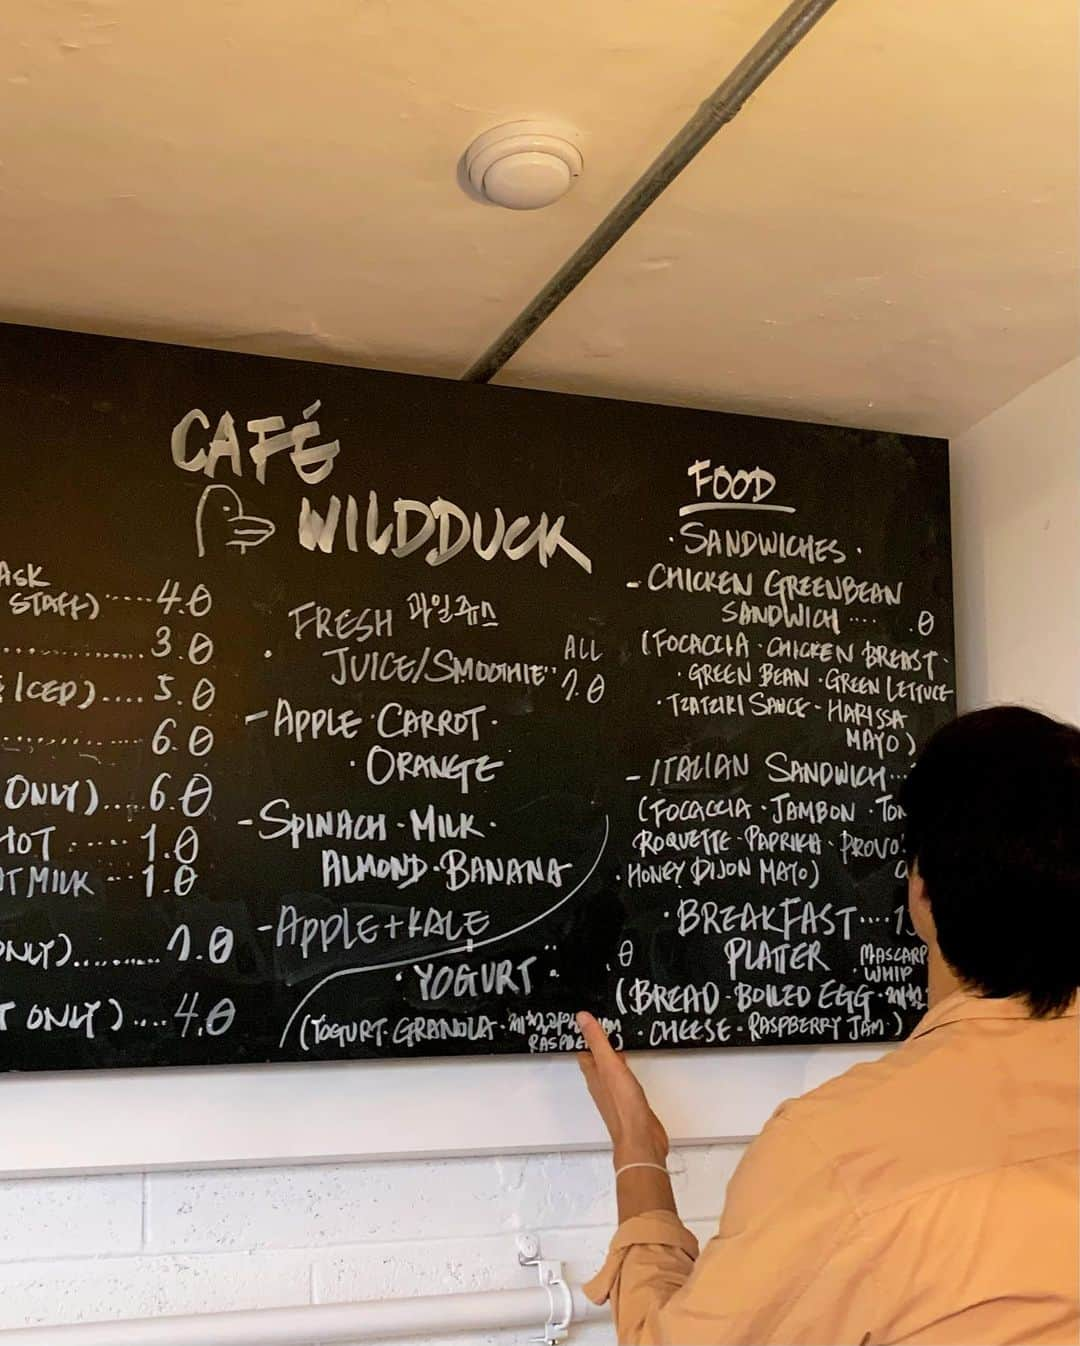 CAFÉ
WILDDUCK
ASK
STAFF) ..... 4.0
............... 3.0
ICED).... 5.0
............ 6.0
ONLY).... 6.0
HOT ..... 1.0
MILK ... 1.0
ONLY)......... 7.0
ONLY).... 4.0
FRESH 과일쥬스
· JUICE/SMOOTHIE·· ALL 7.0
- APPLE · CARROT ·
· ORANGE
- SPINACH · MILK ·
ALMOND · BANANA
- APPLE + KALE
· YOGURT · .. .0
(YOGURT · GRANOLA · 제철과일
FOOD
· SANDWICHES ·
- CHICKEN GREENBEAN
SANDWICH .... .0
(FOCACCIA · CHICKEN BREAST ·
· GREEN BEAN · GREEN LETTUCE
· TZATZIKI SAUCE - HARISSA
MAYO)
- ITALIAN SANDWICH...
(FOCACCIA · JAMBON ·
ROQUETTE · PAPRIKA ·
· HONEY DIJON MAYO)
· BREAKFAST....
PLATTER
· WHIP
(BREAD · BOILED EGG ·
· CHEESE · RASPBERRY JAM · )